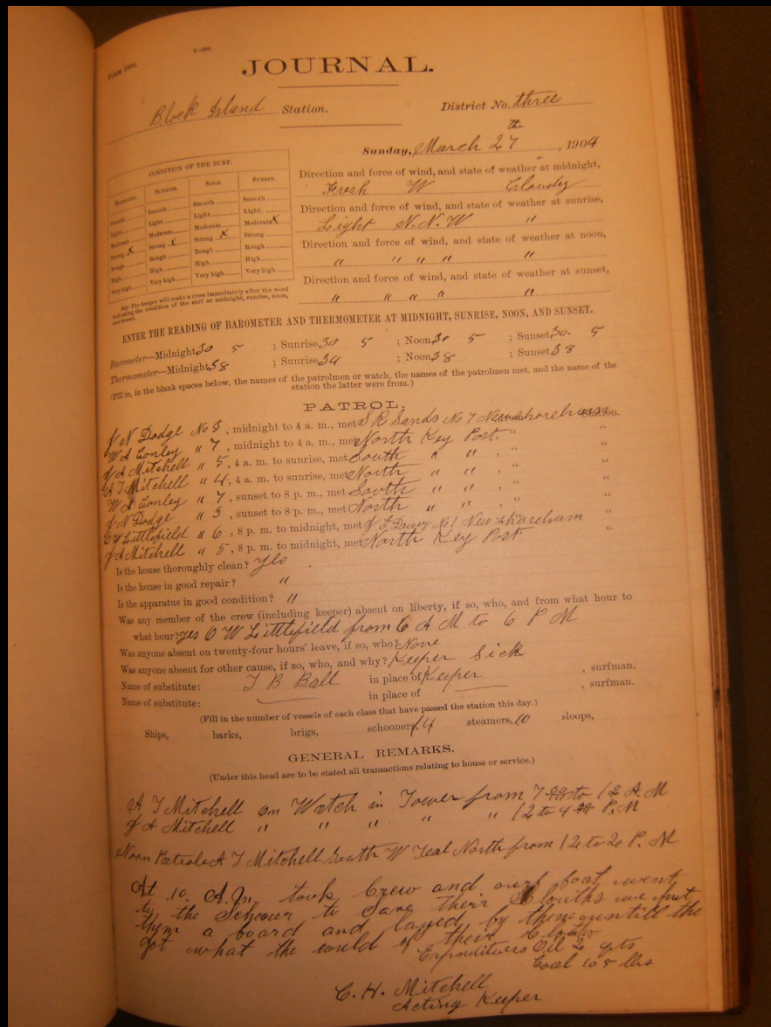 JOURNAL.
Block Island Station. District No. three
Sunday, March 27 th, 1904
CONDITION OF THE SURF.
MIDNIGHT. SUNRISE. NOON. SUNSET.
Smooth Smooth Smooth Smooth
Light Light Light Light
Moderate Moderate Moderate Moderate X
Strong X Strong X Strong X Strong
Rough Rough Rough Rough
High High High High
Very high Very high Very high Very high
The keeper will make a cross immediately after the word
indicating the condition of the surf at midnight, sunrise, noon,
and sunset.
Direction and force of wind, and state of weather at midnight,
Fresh W Cloudy
Direction and force of wind, and state of weather at sunrise,
Light N.N.W "
Direction and force of wind, and state of weather at noon,
" " " " "
Direction and force of wind, and state of weather at sunset,
" " " " "
ENTER THE READING OF BAROMETER AND THERMOMETER AT MIDNIGHT, SUNRISE, NOON, AND SUNSET.
Barometer—Midnight 30 5 ; Sunrise 30 5 ; Noon 30 5 ; Sunset 30. 5
Thermometer—Midnight 38 ; Sunrise 34 ; Noon 38 ; Sunset 38
(Fill in, in the blank spaces below, the names of the patrolmen or watch, the names of the patrolmen met, and the name of the
station the latter were from.)
PATROL.
J N Dodge No 3, midnight to 4 a. m., met S R Sands No 7 New Shoreham
W A Conley " 7, midnight to 4 a. m., met North Key Post. "
J A Mitchell " 5, 4 a. m. to sunrise, met South " " , "
A T Mitchell " 4, 4 a. m. to sunrise, met North " " "
W A Conley " 7, sunset to 8 p. m., met South " " , "
J N Dodge " 3, sunset to 8 p. m., met North " " , "
O W Littlefield " 6, 8 p. m. to midnight, met J E Dewey No 1 New Shoreham "
J A Mitchell " 5, 8 p. m. to midnight, met North Key Post "
Is the house thoroughly clean? Yes
Is the house in good repair? "
Is the apparatus in good condition? "
Was any member of the crew (including keeper) absent on liberty, if so, who, and from what hour to
what hour? yes O W Littlefield from 6 A M to 6 P M
Was anyone absent on twenty-four hours' leave, if so, who? None
Was anyone absent for other cause, if so, who, and why? Keeper Sick
Name of substitute: T B Ball in place of Keeper , surfman.
Name of substitute: in place of , surfman.
(Fill in the number of vessels of each class that have passed the station this day.)
Ships, barks, brigs, schooners, 14 steamers, 10 sloops,
GENERAL REMARKS.
(Under this head are to be stated all transactions relating to house or service.)
A T Mitchell on Watch in Tower from 7 to 12 A M
J A Mitchell " " " " " 12 to 4 P. M
Noon Patrole A T Mitchell South W Teal North from 12 to 2 P. M
At 10. A.M. took Crew and surf boat went
to the Schooner to save their Clouths we put
them a board and layed by them untill the
got what the would of their Clouths
Expenditures Oil 2 qts
Coal 105 lbs
C. H. Mitchell
Acting Keeper